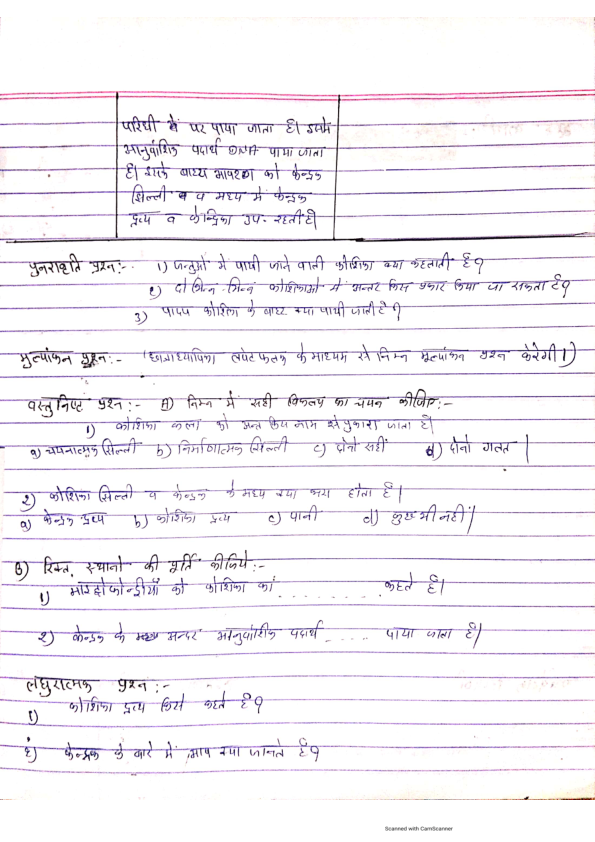 परिधी में पर पाया जाता है। इसमे
आनुवांशिक पदार्थ DNA पाया जाता
है। इसके बाह्य आवरण को केन्द्रक
झिल्ली व व मध्य में केन्द्रक
द्रव्य व केन्द्रिका उप- रहती है।
पुनरावृति प्रश्न:- 1) जन्तुओं में पायी जाने वाली कोशिका क्या कहलाती है?
2) दो भिन्न-भिन्न कोशिकाओं में अन्तर किस प्रकार किया जा सकता है?
3) पादप कोशिका के बाहर क्या पायी जाती है?
मुल्यांकन प्रश्न:- (छात्राध्यापिका लपेट फलक के माध्यम से निम्न मूल्यांकन प्रश्न करेगी।)
वस्तुनिष्ट प्रश्न:- A) निम्न में सही विकल्प का चयन कीजिए:-
1) कोशिका कला को अन्त किस नाम से पुकारा जाता है।
a) चयनात्मक झिल्ली b) निर्माणात्मक झिल्ली c) दोनो सही d) दोनो गलत।
2) कोशिका झिल्ली व केन्द्रक के मध्य क्या भरा होता है।
a) केन्द्रक द्रव्य b) कोशिका द्रव्य c) पानी d) कुछ भी नहीं।
B) रिक्त स्थानो की पूर्ति कीजिये:-
1) माइटोकोन्ड्रीयाँ को कोशिका का ........ कहते है।
2) केन्द्रक के अन्दर आनुवांशिक पदार्थ ..... पाया जाता है।
लघुरात्मक प्रश्न:-
1) कोशिका द्रव्य किसे कहते है?
2) केन्द्रक के बारे में आप क्या जानते है?
Scanned with CamScanner